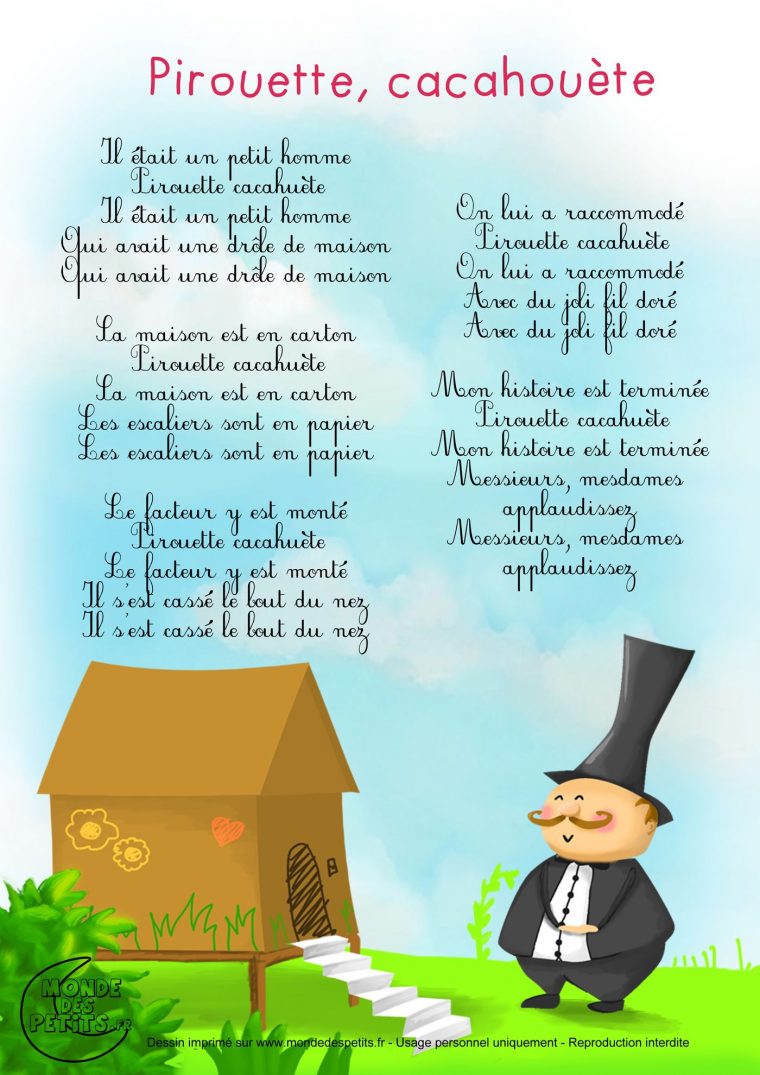 Pirouette, cacahouète
Il était un petit homme
Pirouette cacahuète
Il était un petit homme
Qui avait une drôle de maison
Qui avait une drôle de maison
La maison est en carton
Pirouette cacahuète
La maison est en carton
Les escaliers sont en papier
Les escaliers sont en papier
Le facteur y est monté
Pirouette cacahuète
Le facteur y est monté
Il s'est cassé le bout du nez
Il s'est cassé le bout du nez
On lui a raccommodé
Pirouette cacahuète
On lui a raccommodé
Avec du joli fil doré
Avec du joli fil doré
Mon histoire est terminée
Pirouette cacahuète
Mon histoire est terminée
Messieurs, mesdames
applaudissez
Messieurs, mesdames
applaudissez
MONDE
DES
PETITS.FR
Dessin imprimé sur www.mondedespetits.fr - Usage personnel uniquement - Reproduction interdite